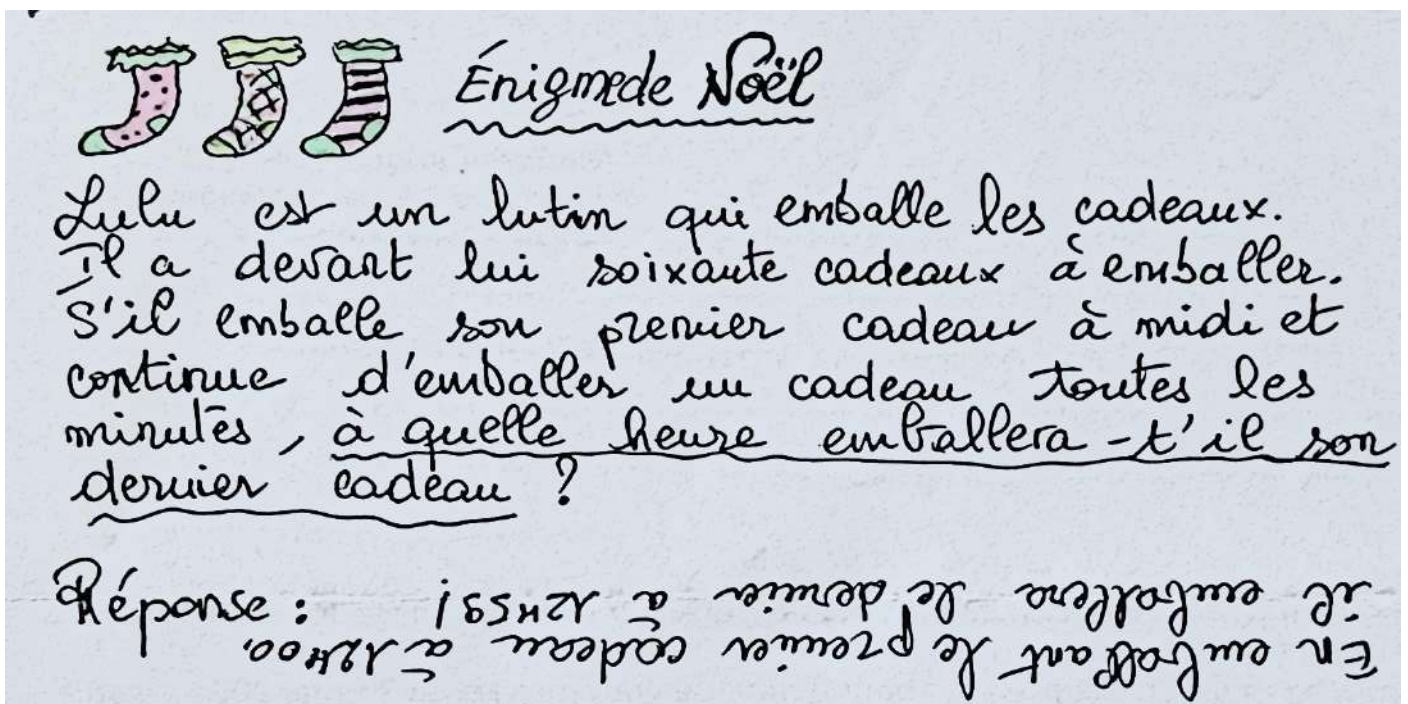 Énigme de Noël
Lulu est un lutin qui emballe les cadeaux.
Il a devant lui soixante cadeaux à emballer.
S'il emballe son premier cadeau à midi et
continue d'emballer un cadeau toutes les
minutes, à quelle heure emballera-t'il son
dernier cadeau ?
Réponse :
En emballant le premier cadeau à 12H00,
il emballera le dernier à 12H59!